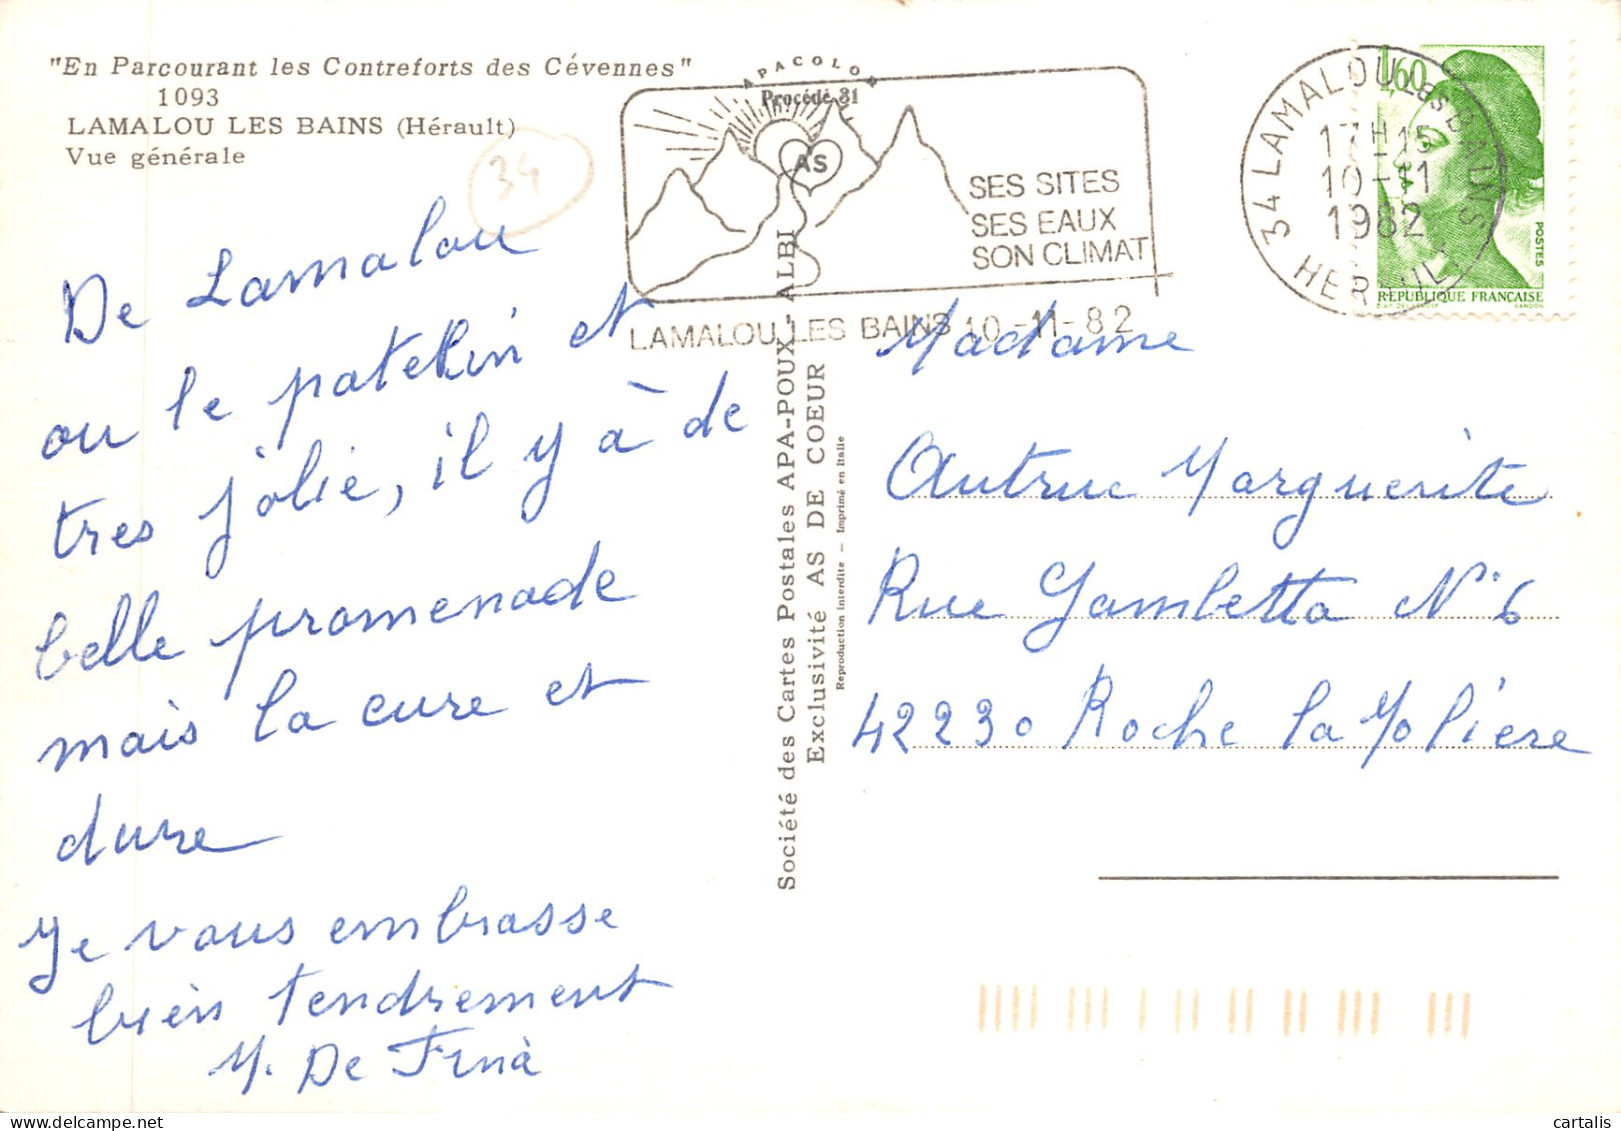 "En Parcourant les Contreforts des Cévennes"
1093
LAMALOU LES BAINS (Hérault)
Vue générale
34
De Lamalou
ou le patelin et
tres jolie, il y à de
belle promenade
mais la cure et
dure
Je vous embrasse
bien tendrement
M. De Finà
APACOLOR
Procédé 81
AS
SES SITES
SES EAUX
SON CLIMAT
LAMALOU LES BAINS 10-11-82
34 LAMALOU LES BAINS
17H15
10-11
1982
HERAULT
1,60
POSTES
REPUBLIQUE FRANÇAISE
GANDON
Société des Cartes Postales APA-POUX - ALBI
Exclusivité AS DE COEUR
Reproduction Interdite — Imprimé en Italie
Madame
Autruc Marguerite
Rue Gambetta N° 6
42230 Roche la Moliere
cartalis